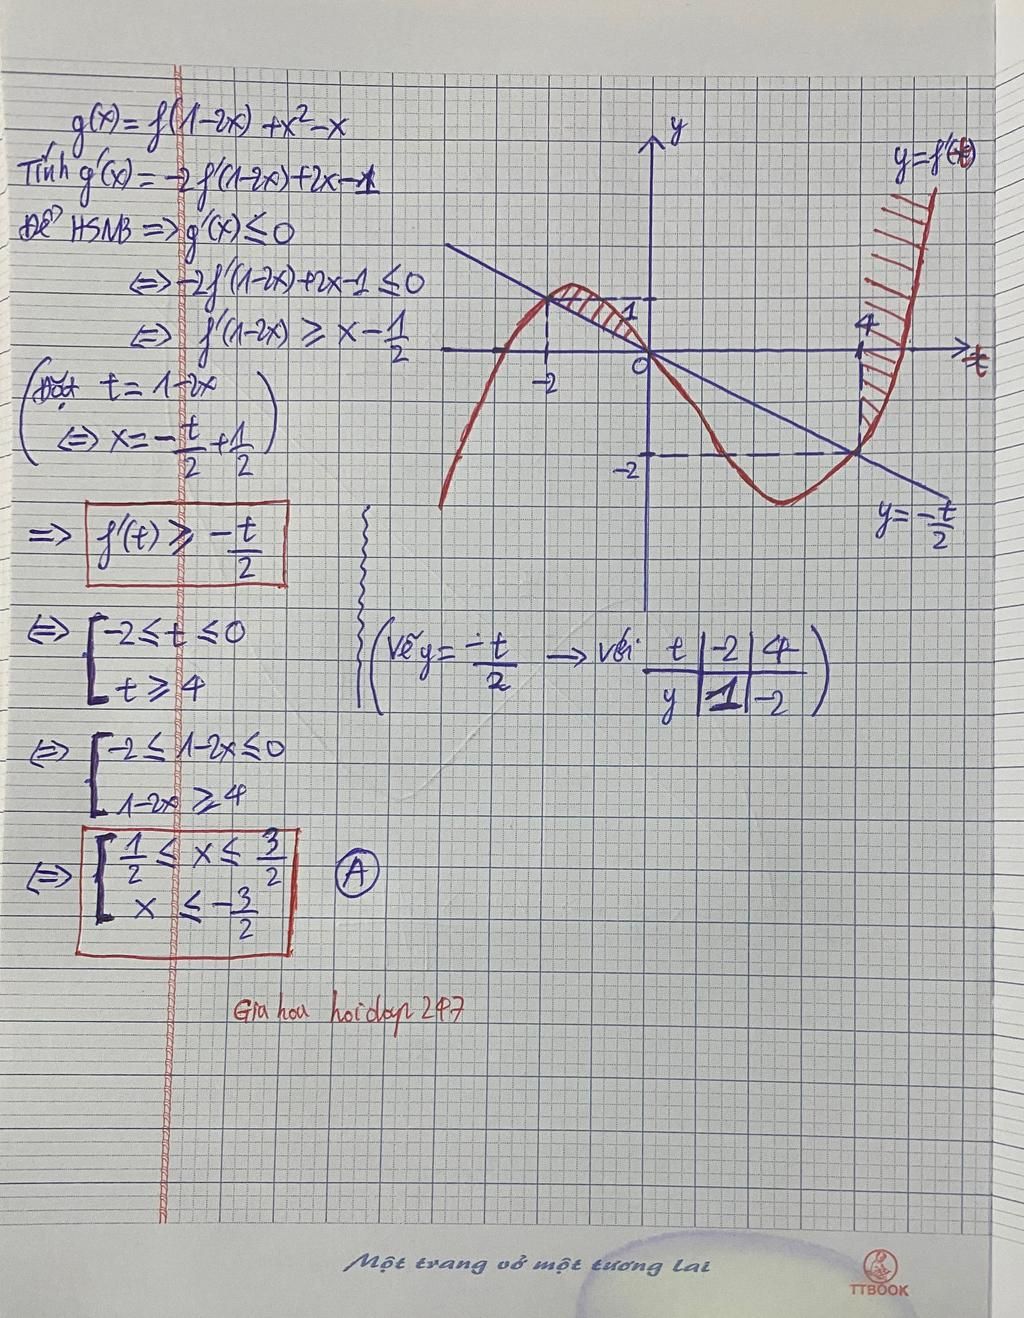 g(x) = f(1-2x) + x² - x
Tính g'(x) = -2f'(1-2x) + 2x - 1
Để HSNB => g'(x) ≤ 0
<=> -2f'(1-2x) + 2x - 1 ≤ 0
<=> f'(1-2x) ≥ x - 1/2
(Đặt t = 1-2x
<=> x = -t/2 + 1/2)
=> f'(t) ≥ -t/2
<=> [ -2 ≤ t ≤ 0
t ≥ 4
<=> [ -2 ≤ 1-2x ≤ 0
1-2x ≥ 4
<=> [ 1/2 ≤ x ≤ 3/2
x ≤ -3/2
A
y
y = f'(t)
1
4
-2
0
t
-2
y = -t/2
(Vẽ y = -t/2 → với t | -2 | 4
y | 1 | -2)
Gia hou hoidap 247
Một trang vở một tương lai
TTBOOK